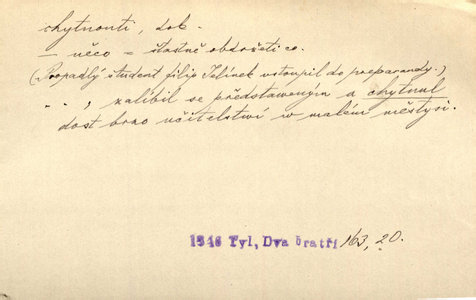 chytnouti, dok.
— něco = šťastně obdržeti co.
(Propadlý student filip Jelínek vstoupil do preparandy.)
. . , zalíbil se představeným a chytnul
dost brzo učitelství v malém městysi.
1846 Tyl, Dva bratři 163, 20.